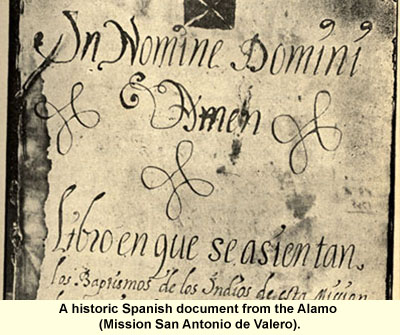 In Nomine Domini
Amen
Libro en que se asientan
los Baptismos de los Indios de esta Mission
A historic Spanish document from the Alamo
(Mission San Antonio de Valero).